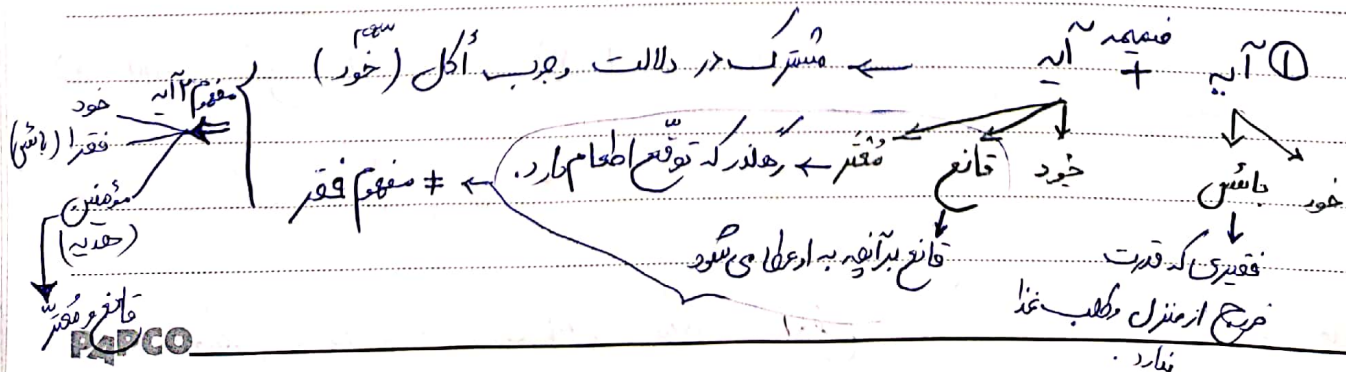 ① آیه + ضمیمه آیه ← مشترک در دلالت وجوب أکل (خود) سهم
خود
بائس
فقیری که قدرت
خروج از منزل و طلب غذا
ندارد.
خود
قانع
قانع بر آنچه به او عطا می‌شود
مُعتَر ← رهگذر که توقّع اطعام دارد.
← ≠ مفهوم فقر
مفهوم ۲ آیه
خود
فقرا (بائس)
مؤمنین
(هدیه)
قانع و مُعتَرّ
PAPCO